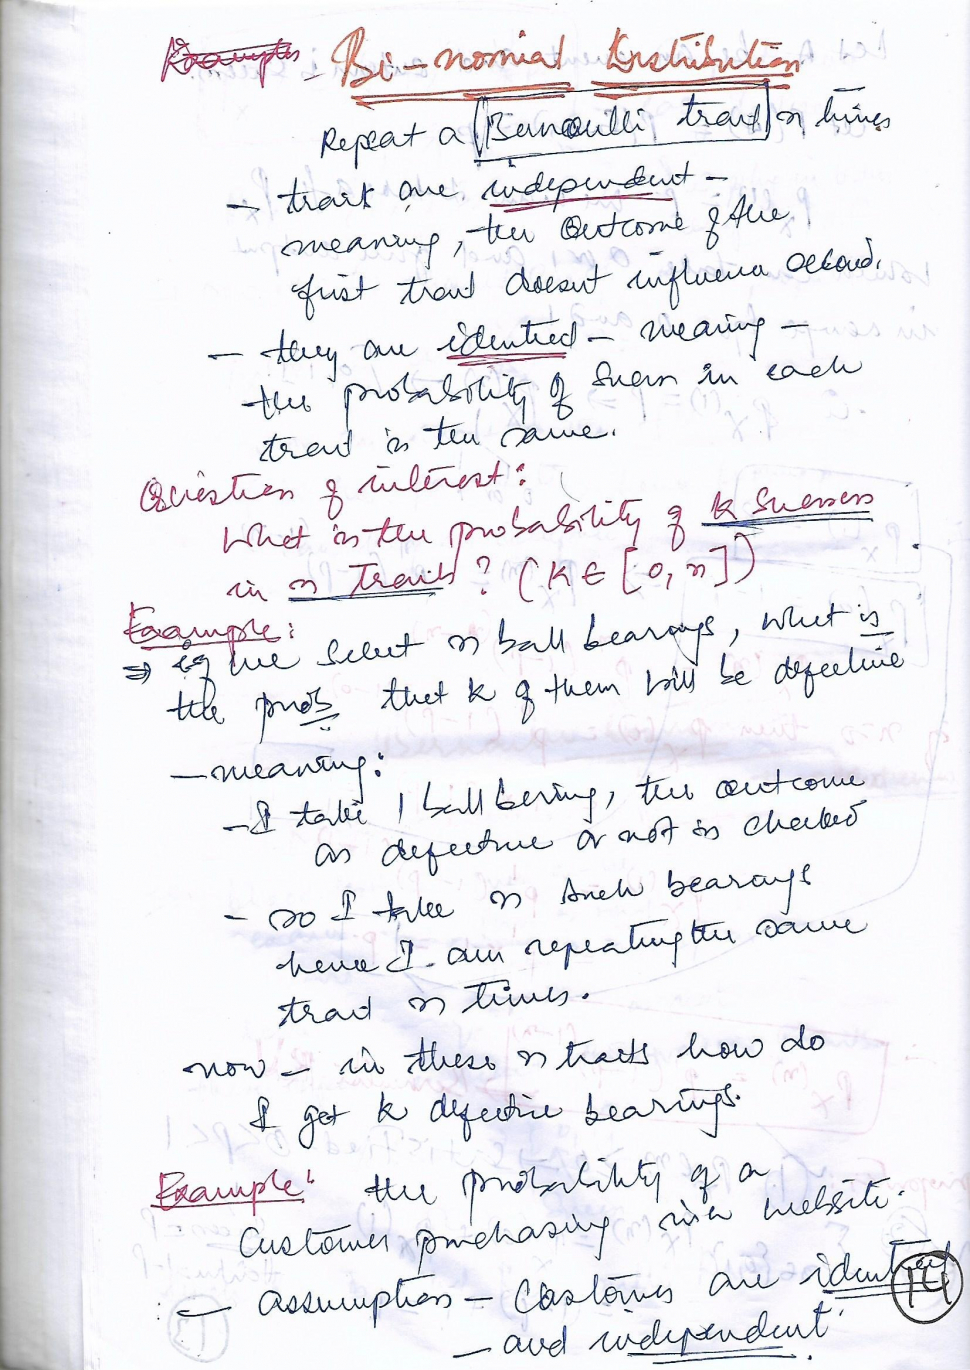 Examples - Bi-nomial Distribution
Repeat a Bernoulli trail n times
- trails are independent -
meaning, the outcome of the
first trail doesnt influence second.
- they are identical - meaning -
the probability of success in each
trail is the same.
Question of interest:
What is the probability of k success
in n trails? (K ∈ [0, n])
Example:
⇒ if we select n ball bearings, what is
the prob that k of them will be defective
- meaning:
- I take 1 ball bering, the outcome
as defective or not is checked
- so I take n such bearings
hence I am repeating the same
trail n times.
now - in these n trails how do
I get k defective bearings.
Example: the probability of a
Customer purchasing in a website.
- assumption - Customers are identical
- and independent
14